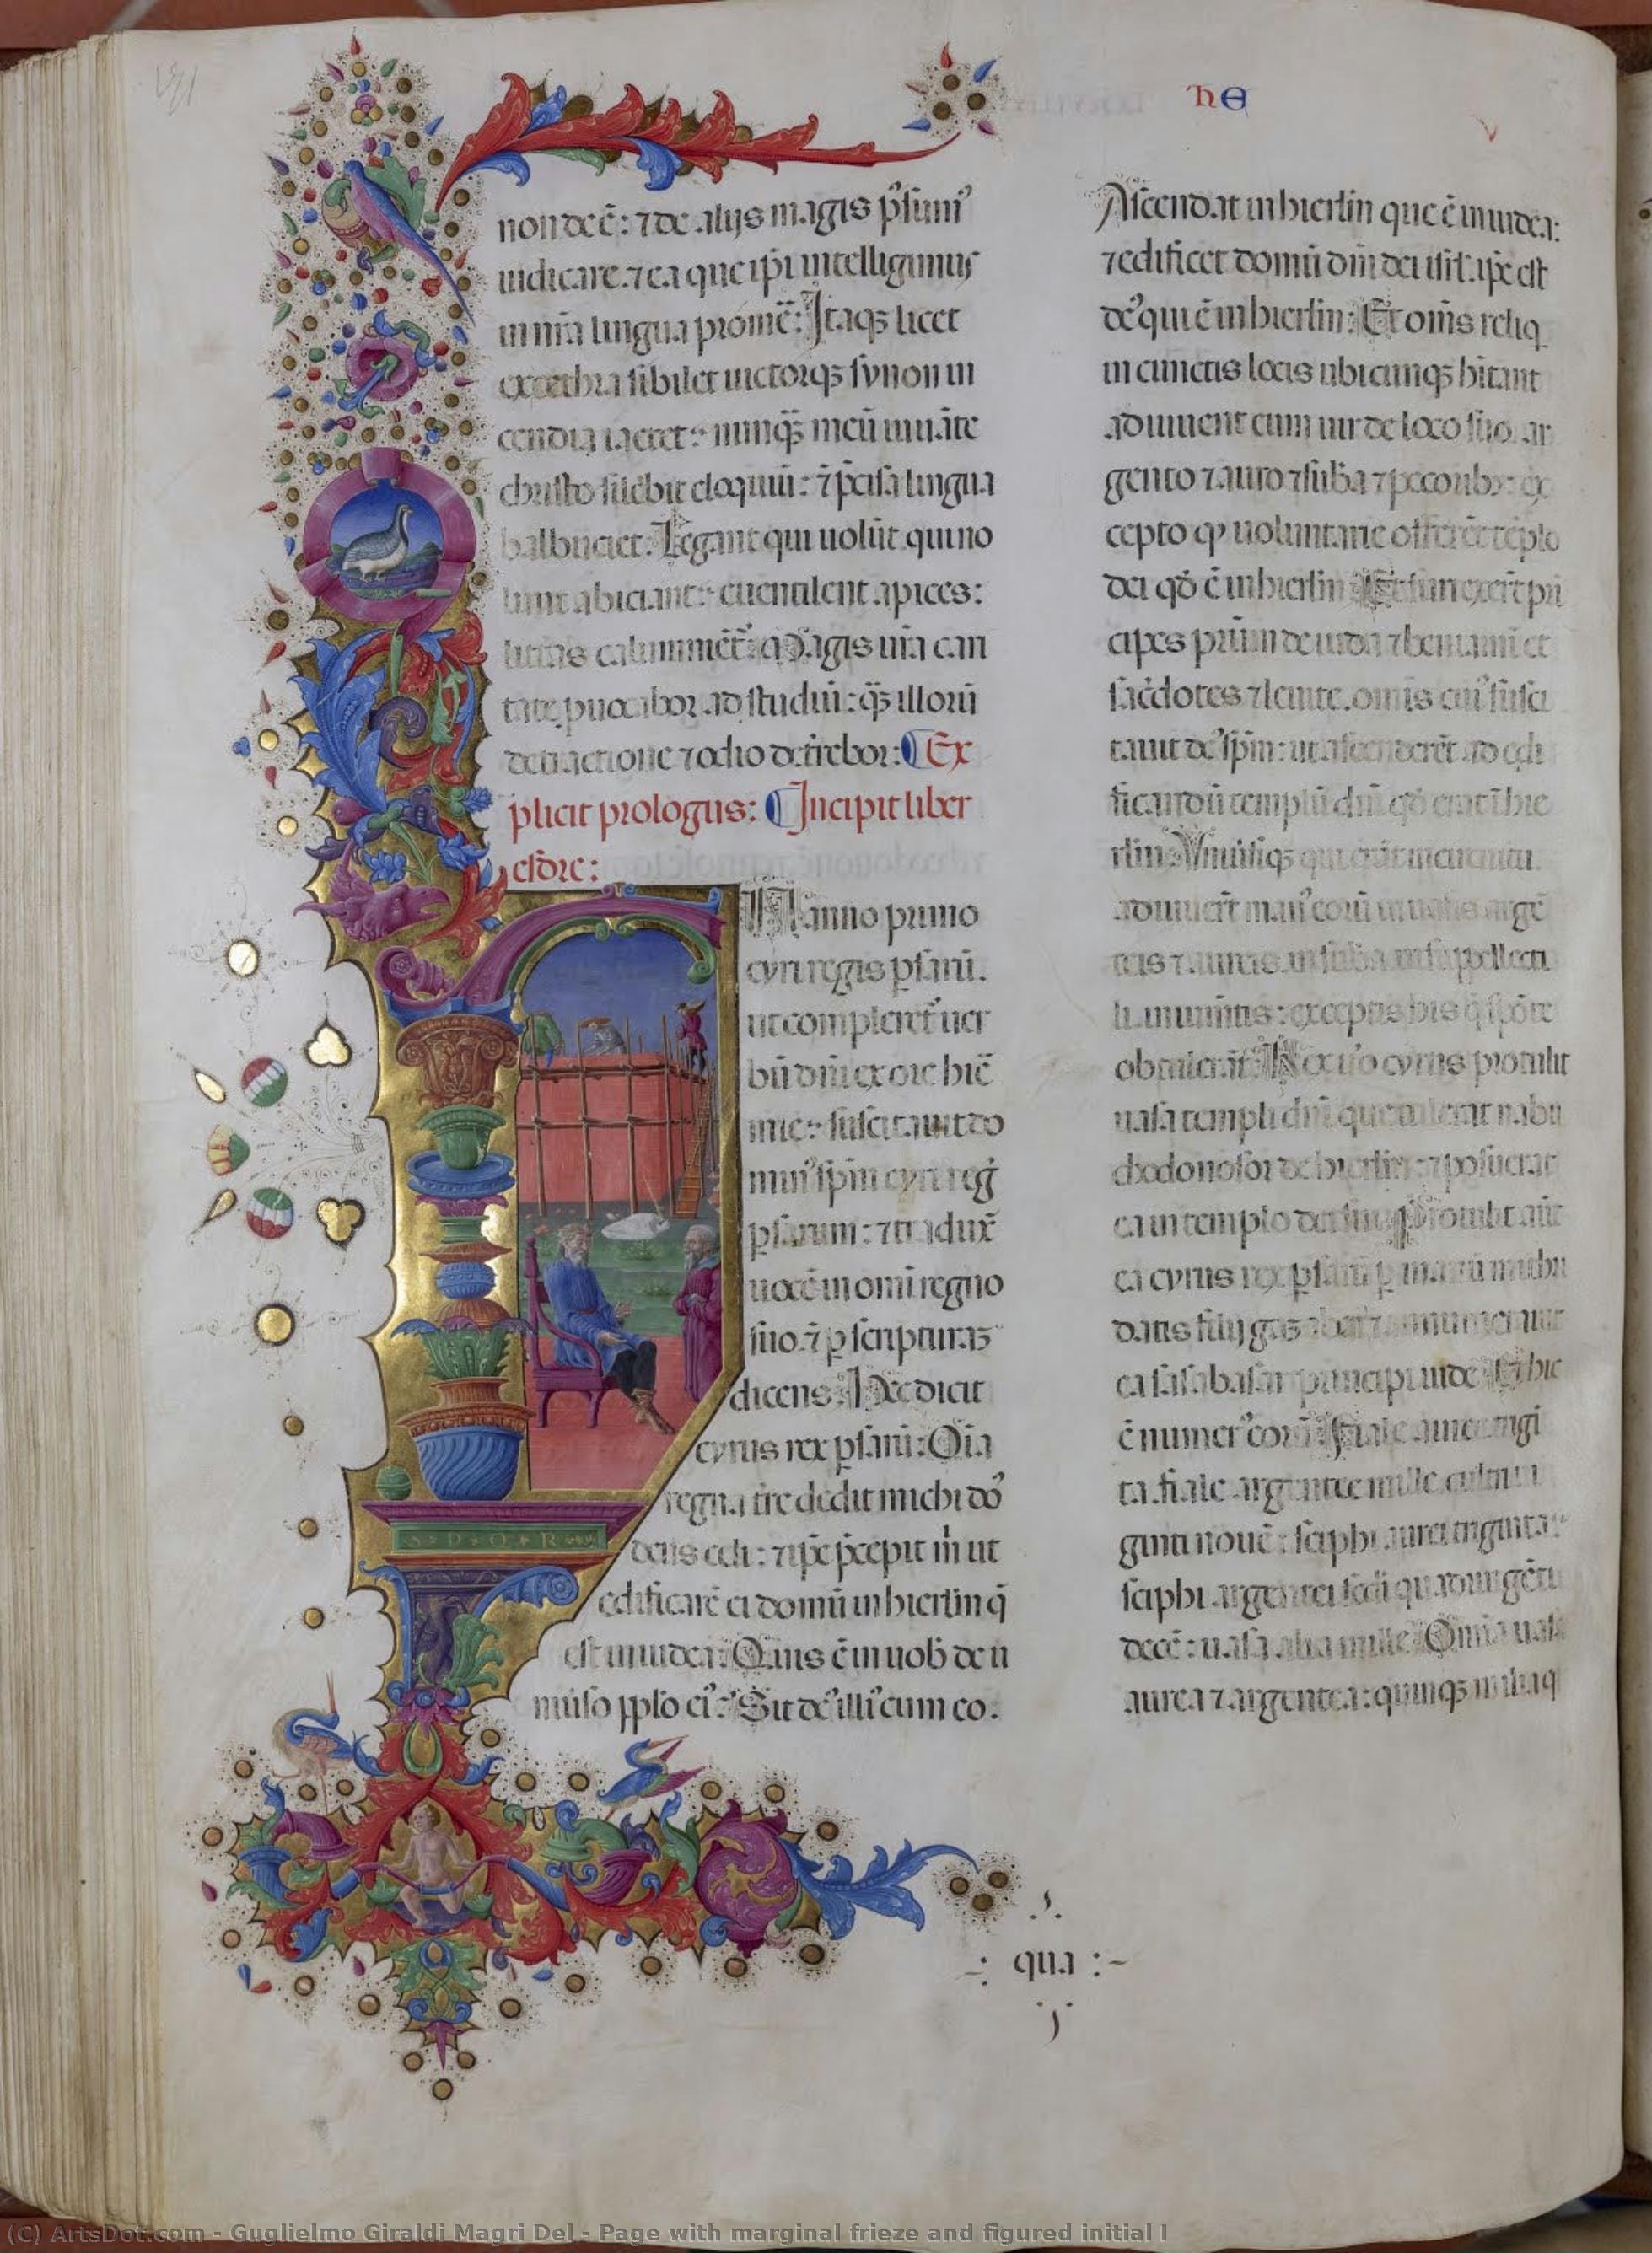 hE
non dē ē: ⁊ de alijs magis p̄sum̾
iudicare. ⁊ ea que ip̄i intelligimus
in nr̄a lingua promē: Itaqꝫ licet
excethra sibilet uictorqꝫ synon in
cendia iacet: nunqꝫ̄ meū iuuāte
christo silebit eloquiū: ⁊̄ p̄cisa lingua
balbuciet. Legant qui uolūt qui no
lunt abiciant: euentilent apices:
litt̄as calumniēt̾: Magis ur̄a cari
tate puocabor ad studiū: qꝫ̄ illorū
detractione ⁊ odio deterrebor: Ex
plicit prologus: Incipit liber
esdre:
IN anno primo
cyri regis p̱sarū.
ut compleret̾ uer
bū dn̄i ex ore hiē
mie: suscitauit do
min̾ sp̄m cyri reg̾
p̱sarum: ⁊ traduxt̄
uocē in omi regno
suo. ⁊̄ p̱ scripturaꝫ
dicens. Hec dicit
cyrus rex p̱sarū: Oīa
regna tr̄e dedit michi do̾
deus celi: ⁊ ip̄e p̄cepit m̄ ut
edificarē ei domū in hierl̄m q̄
est in iudea: Quis ē in uob̾ de u
niuso pp̄lo ei̾: Sit de̾ illi̾ cum eo:
Ascendat in hierl̄m que ē in iudea:
⁊ edificet domū dn̄i dei isrl̄. ip̄e est
de̾ qui ē in hierl̄m: Et om̄s reliq
in cunctis locis ubicunqꝫ hītant
adiuuent eum uir de loco suo. ar
gento ⁊ auro ⁊ suba ⁊ pecorib꜒: ex
cepto qꝫ uoluntarie offerēt tēplo
dei qd̾ ē in hierl̄m Et surrexert̄ pri
cipes patrū de iuda ⁊ beniamī et
sac̾dotes ⁊ leuite. omis cui̾ susci
tauit de̾ sp̄m: ut ascenderēt ad edi
ficandū templū dn̄i qd̾ erat ī hie
rl̄m: Vniuēsiqꝫ qui erāt in circuitu.
adiuuert̄ man̾ eorū in uasis argē
teis ⁊ aureis. in suba in suppellecti
li. in iumētis: exceptis his q̄ spōte
obtulerāt: Rex u̾o cyrus protulit
uasa templi dn̄i que tulerat nabu
chodonosor de hierl̄m: ⁊ posuerat
ea in templo dei sui. Protulit aūt
ea cyrus rex p̱sarū p̱ manū mithri
datis filij gaꝫabar ⁊ annumerauit
ea sasabasar principi iude. Et hic
ē numer̾ eorū: Fiale auree trigi
ta. fiale argentee mille. cultri ui
ginti nouē: sciphi aurei triginta:
sciphi argentei scdī quadringēti
decē: uasa alia mille. Omia uasa
aurea ⁊ argentea: quinqꝫ milia q
S P Q R
qua
(C) ArtsDot.com - Guglielmo Giraldi Magri Del - Page with marginal frieze and figured initial I